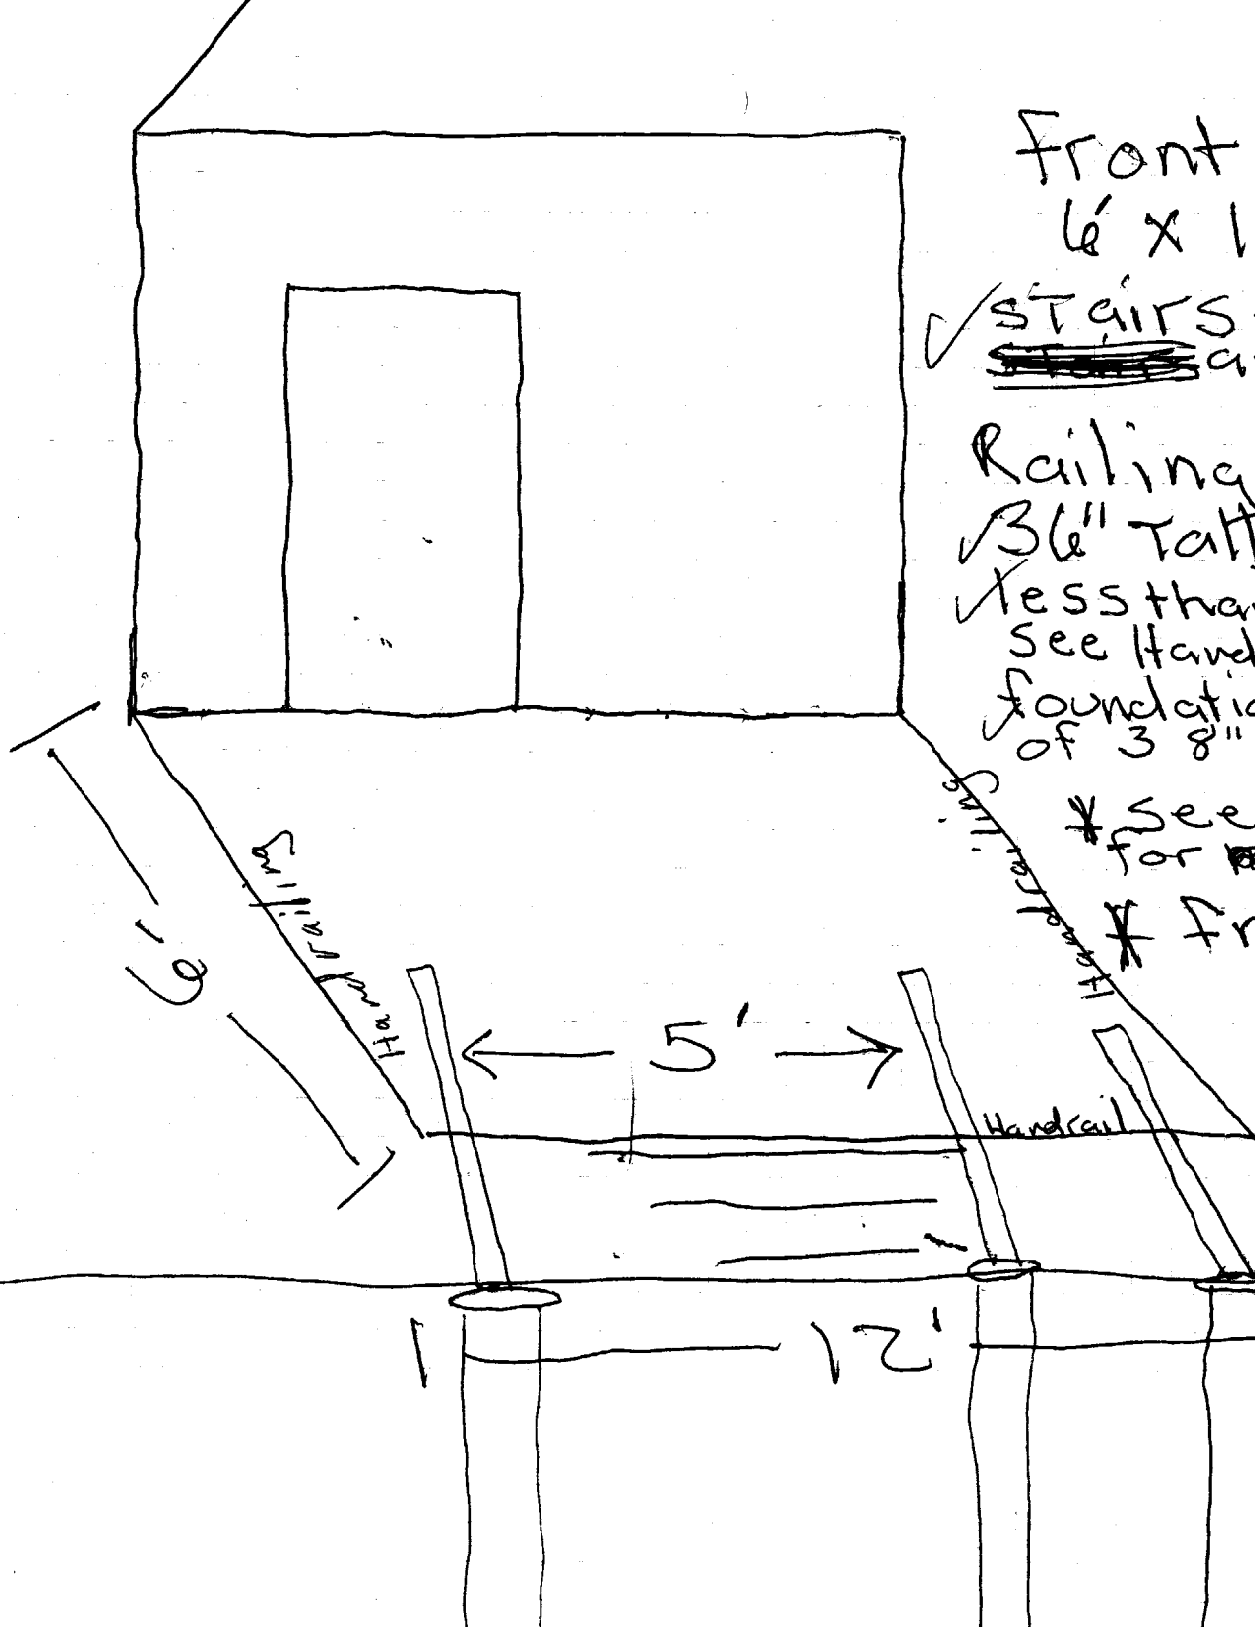 Front
6' x 1
stairs
Railing
36" Tall
less than
see Hand
foundatio
of 3 8"
* see
for
* Fr
Handrailing
Handrailing
6'
5'
Handrail
12'